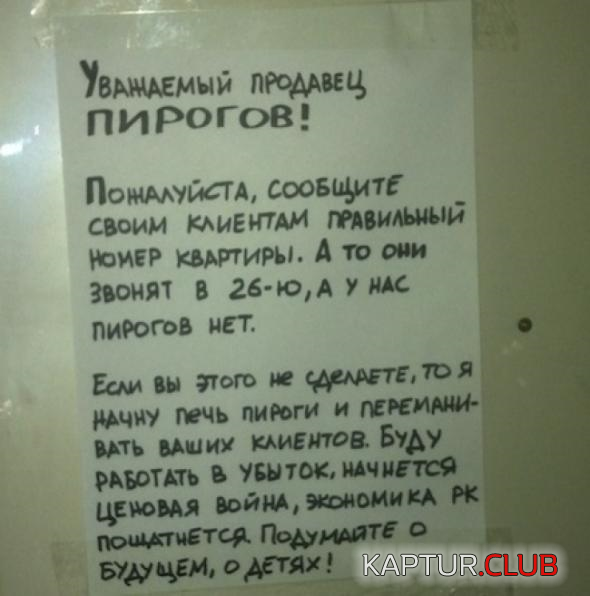 Уважаемый продавец
ПИРОГОВ!
Пожалуйста, сообщите
своим клиентам правильный
номер квартиры. А то они
звонят в 26-ю, а у нас
пирогов нет.
Если вы этого не сделаете, то я
начну печь пироги и перемани-
вать ваших клиентов. Буду
работать в убыток, начнется
ценовая война, экономика РК
пошатнется. Подумайте о
будущем, о детях!
KAPTUR.CLUB